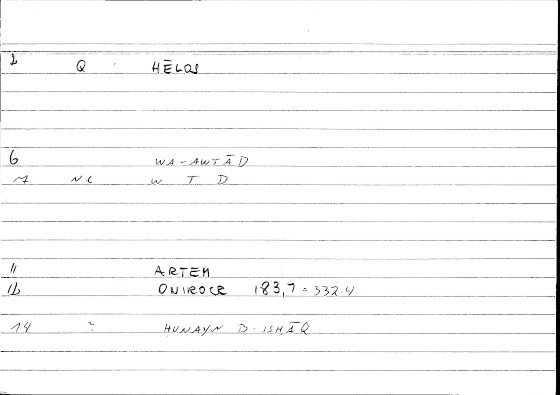 1 Q HĒLOS
6 WA-AWTĀD
7 NC W T D
11 ARTEM
12 ONIROCR 183,7 = 332.4
14 ~ HUNAYN B. ISHĀQ